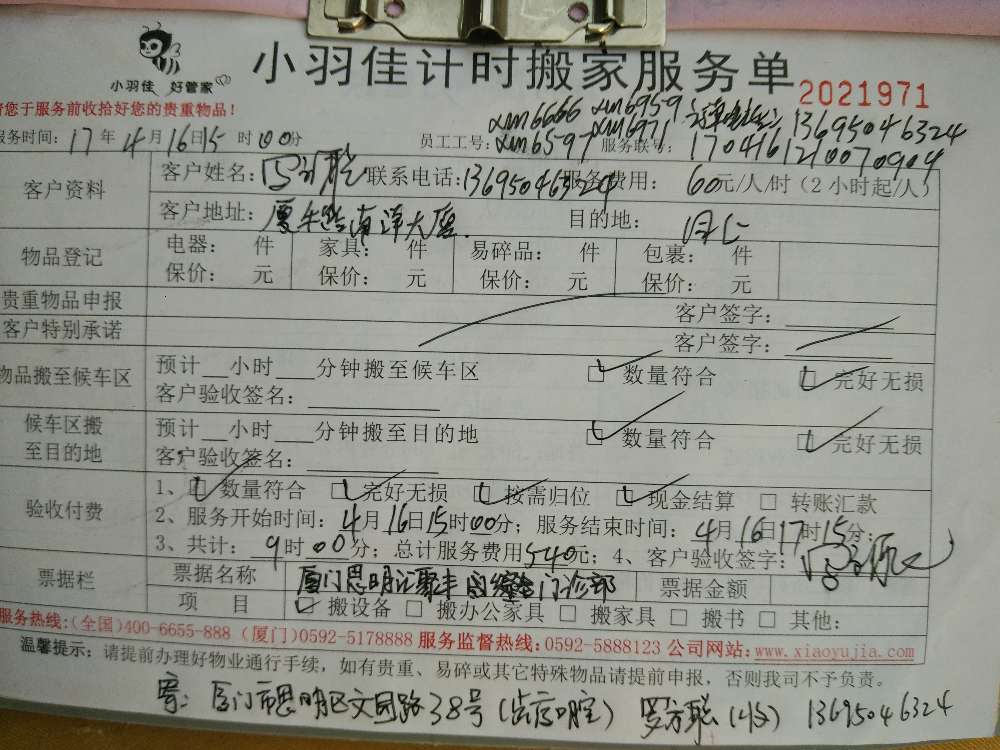 小羽佳 好管家
小羽佳计时搬家服务单
2021971
请您于服务前收拾好您的贵重物品！
服务时间：17年4月16日15时00分 员工工号：xm6666 xm6959 xm6597 xm6971 13695046324
服务联号：1704161210070904
客户资料 客户姓名： 联系电话：13695046324 服务费用：60元/人/时（2小时起/人）
客户地址： 南洋大厦 目的地：
物品登记 电器： 件 家具： 件 易碎品： 件 包裹： 件
保价： 元 保价： 元 保价： 元 保价： 元
贵重物品申报 客户签字：
客户特别承诺 客户签字：
物品搬至候车区 预计__小时___分钟搬至候车区 数量符合 完好无损
客户验收签名：
候车区搬至目的地 预计__小时___分钟搬至目的地 数量符合 完好无损
客户验收签名：
验收付费 1、数量符合 完好无损 按需归位 现金结算 转账汇款
2、服务开始时间：4月16日15时00分；服务结束时间：4月16日17时15分；
3、共计：9时00分；总计服务费用540元；4、客户验收签字：
票据栏 票据名称 厦门思明汇聚丰 门诊部 票据金额
项 目 搬设备 搬办公家具 搬家具 搬书 其他：
服务热线：(全国)400-6655-888（厦门）0592-5178888 服务监督热线：0592-5888123 公司网站：www.xiaoyujia.com
温馨提示：请提前办理好物业通行手续，如有贵重、易碎或其它特殊物品请提前申报，否则我司不予负责。
寄：厦门市思明区文园路38号 ( 口腔) 罗方聪 13695046324